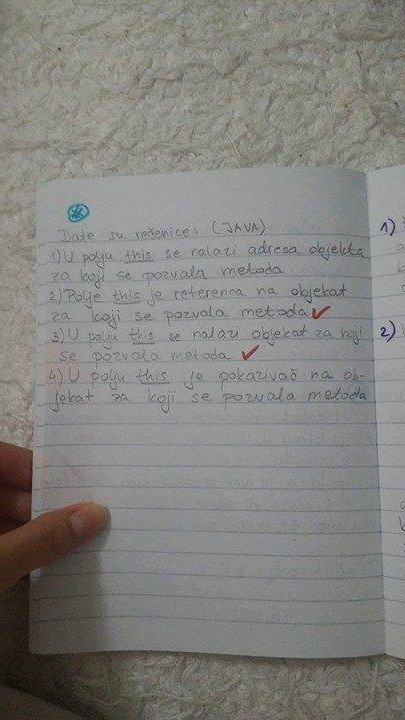 Date su rečenice: (JAVA)
1) U polju this se nalazi adresa objekta
za koji se pozvala metoda
2) Polje this je referenna na objekat
za koji se pozvala metoda ✓
3) U polju this se nalazi objekat za koji
se pozvala metoda ✓
4) U polju this je pokazivač na ob-
jekat za koji se pozvala metoda
1)
2)